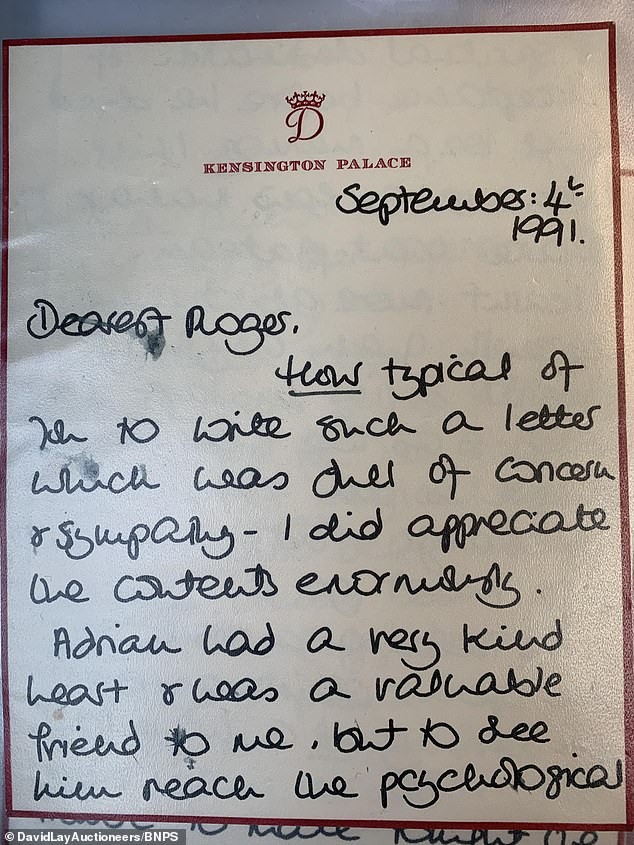 D
KENSINGTON PALACE
September: 4th
1991.
Dearest Roger,
How typical of
you to write such a letter
which was full of concern
& sympathy - I did appreciate
the contents enormously.
Adrian had a very kind
heart & was a valuable
friend to me, but to see
him reach the psychological
© DavidLayAuctioneers/BNPS